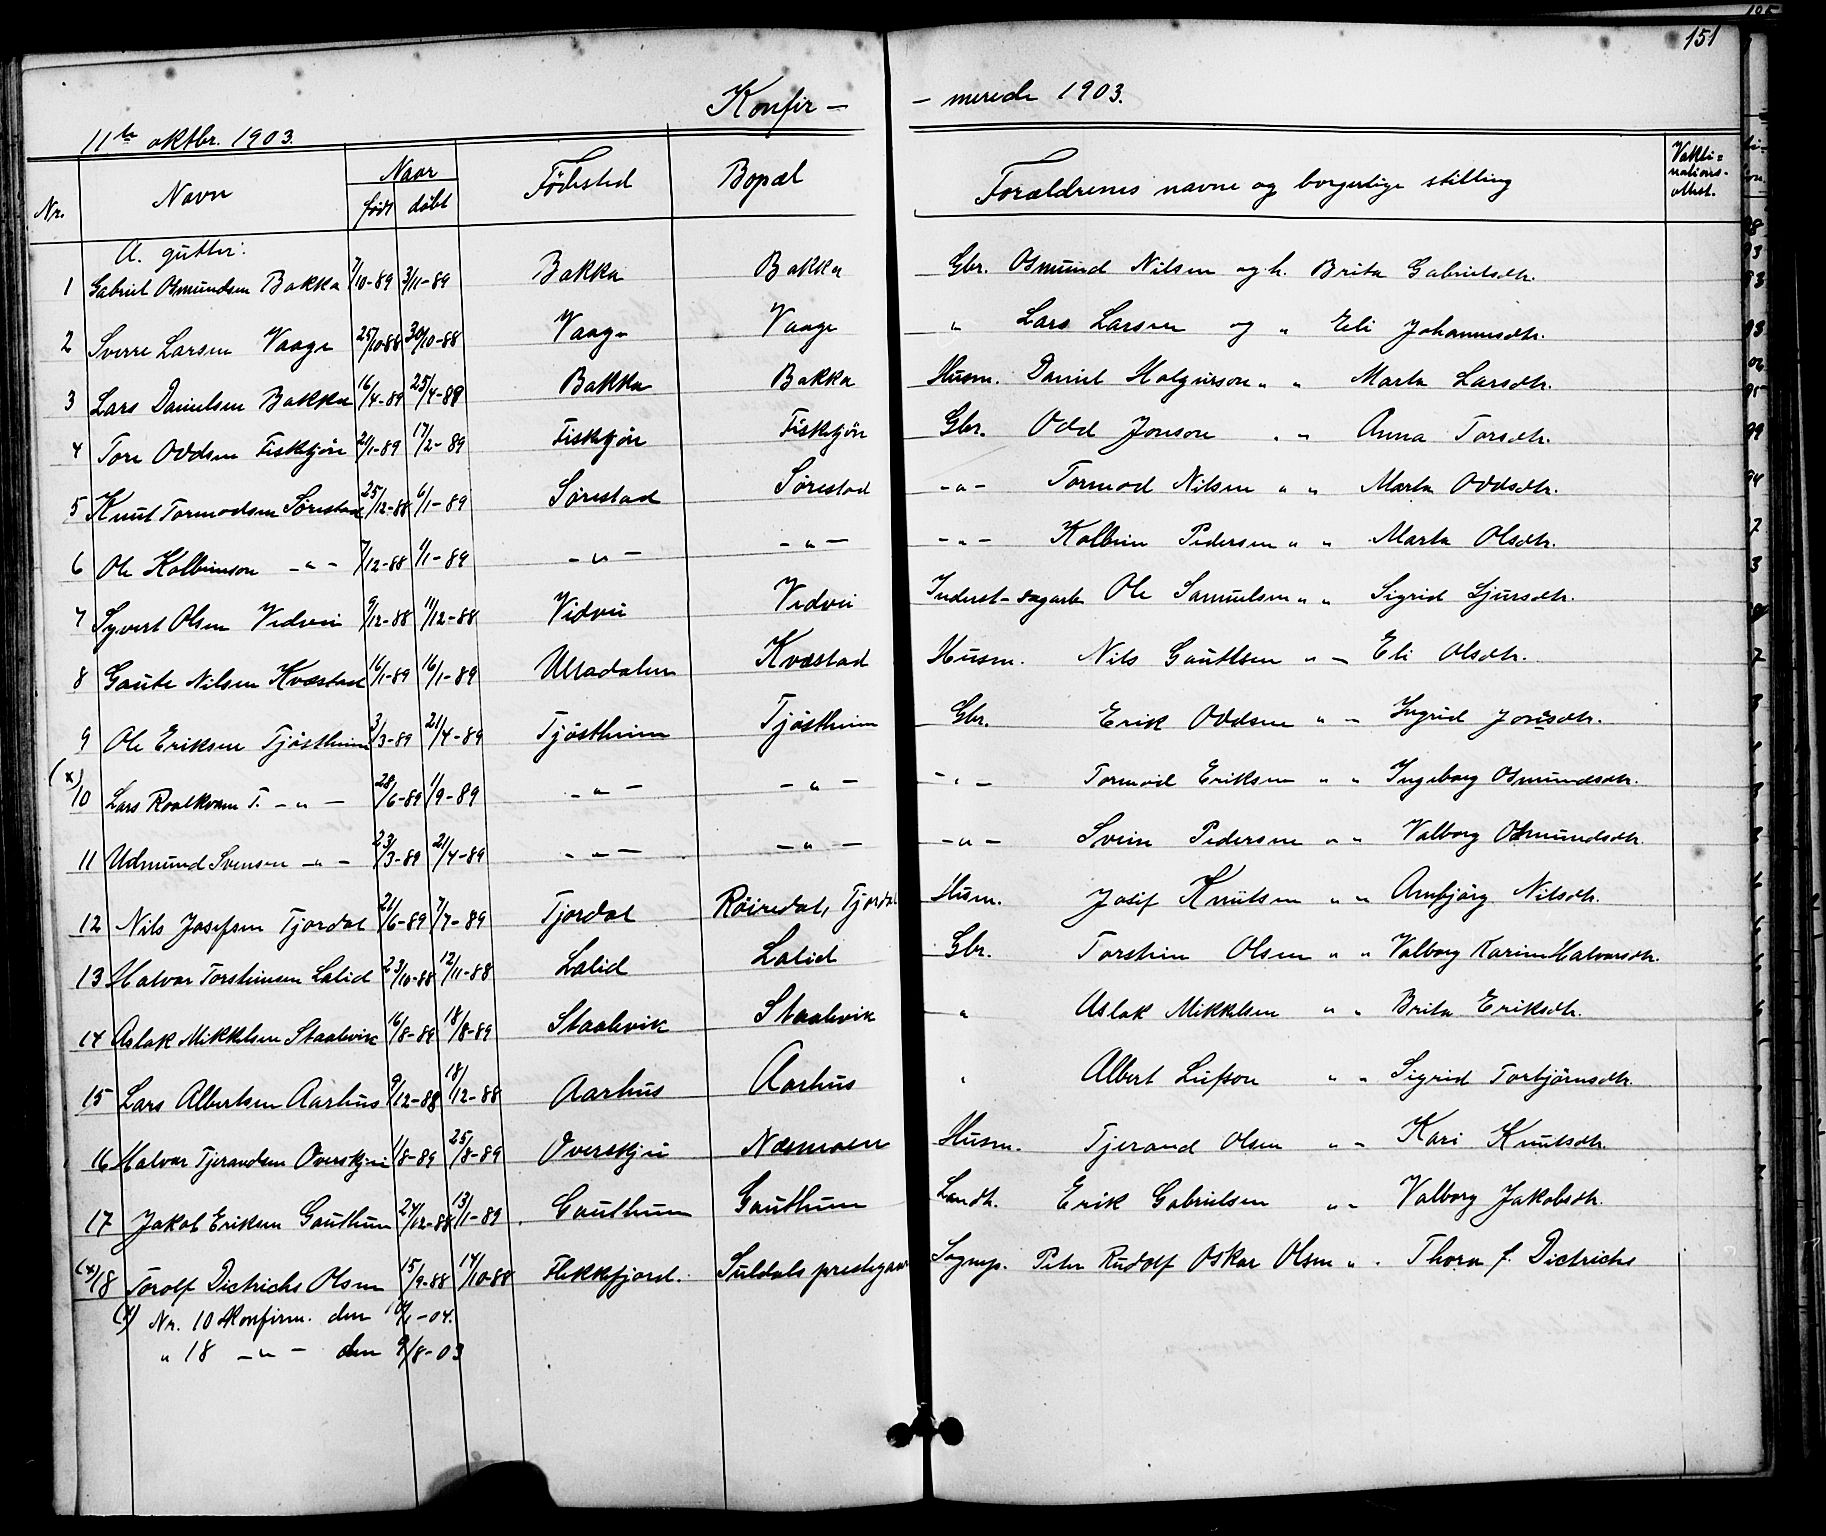 151
Konfir - - merede 1903.
11te oktbr. 1903.
Nr. Navn Naar født døbt Fødested Bopæl Forældrenes navne og borgerlige stilling Vakti= nations- attest.
A. gutter:
1 Gabriel Osmundsen Bakka 7/10-89 3/11-89 Bakka Bakka Gbr. Osmund Nilsen og h. Brita Gabrielsdtr.
2 Sverre Larsen Vaage 25/10-88 30/10-88 Vaage Vaage " Lars Larsen og " Eli Johannesdtr.
3 Lars Danielsen Bakka 16/4-89 25/4-89 Bakka Bakka Husm. Daniel Holgersson " " Marta Larsdtr.
4 Tore Oddsen Fiskekjön 21/1-89 17/2-89 Fiskekjön Fiskekjön Gbr. Odd Jonson " " Anna Torsdtr.
5 Knut Tormodsen Sørestad 25/12-88 6/1-89 Sørestad Sørestad -"- Tormod Nilsen " " Marta Oddsdtr.
6 Ole Kolbeinson -"- 7/12-88 1/1-89 -"- -"- -"- Kolbein Pedersen " " Marta Olsdtr.
7 Syvert Olsen Vidvei 9/12-88 11/12-88 Vidvei Vidvei Inderst-dagarb. Ole Samuelsen " " Sigrid Sjursdtr.
8 Gaute Nilsen Kvæstad 16/1-89 16/1-89 Ulladalen Kvæstad Husm. Nils Gautesen " - Eli Olsdtr.
9 Ole Eriksen Tjøstheim 3/3-89 21/4-89 Tjøstheim Tjøstheim Gbr. Erik Oddsen " - Ingrid Jonsdtr.
(x) 10 Lars Roalkvam T. -"- 28/6-89 1/9-89 -"- -"- -"- Tormod Eriksen " " Ingeborg Osmundsdtr.
11 Udmund Svensen -"- 23/3-89 21/4-89 -"- -"- -"- Svein Pedersen " " Valborg Osmundsdtr.
12 Nils Josefsen Tjordal 21/6-89 7/7-89 Tjordal Röiredal, Tjordal Husm. Josef Knutsen " " Ambjörg Nilsdtr.
13 Halvor Torsteinsen Lalid 23/10-88 12/11-88 Lalid Lalid Gbr. Torstein Olsen " " Valborg Karine Halvorsdtr.
14 Aslak Mikkelsen Staalevik 16/8-89 18/8-89 Staalevik Staalevik " Aslak Mikkelsen " " Brita Eriksdtr.
15 Lars Albertsen Aarhus 9/12-88 18/12-88 Aarhus Aarhus " Albert Leifson " " Sigrid Torbjörnsdtr.
16 Halvor Tjerandsen Overskjei 1/8-89 25/8-89 Overskjei Næsmoen Husm. Tjerand Olsen " - Kari Knutsdtr.
17 Jakob Eriksen Gautheim 27/12-88 13/1-89. Gautheim Gautheim Landh. Erik Gabrielsen " - Valborg Jakobsdtr.
(x) 18 Torolf Dietrichs Olsen 15/9-88 14/10-88 Flekkefjord. Suldals prestegaar Sognep. Peter Rudolf Oskar Olsen " . Thora f. Dietrichs
(x) Nr. 10 konfirm. den 10/1-04.
" 18 -"- den 9/8-03